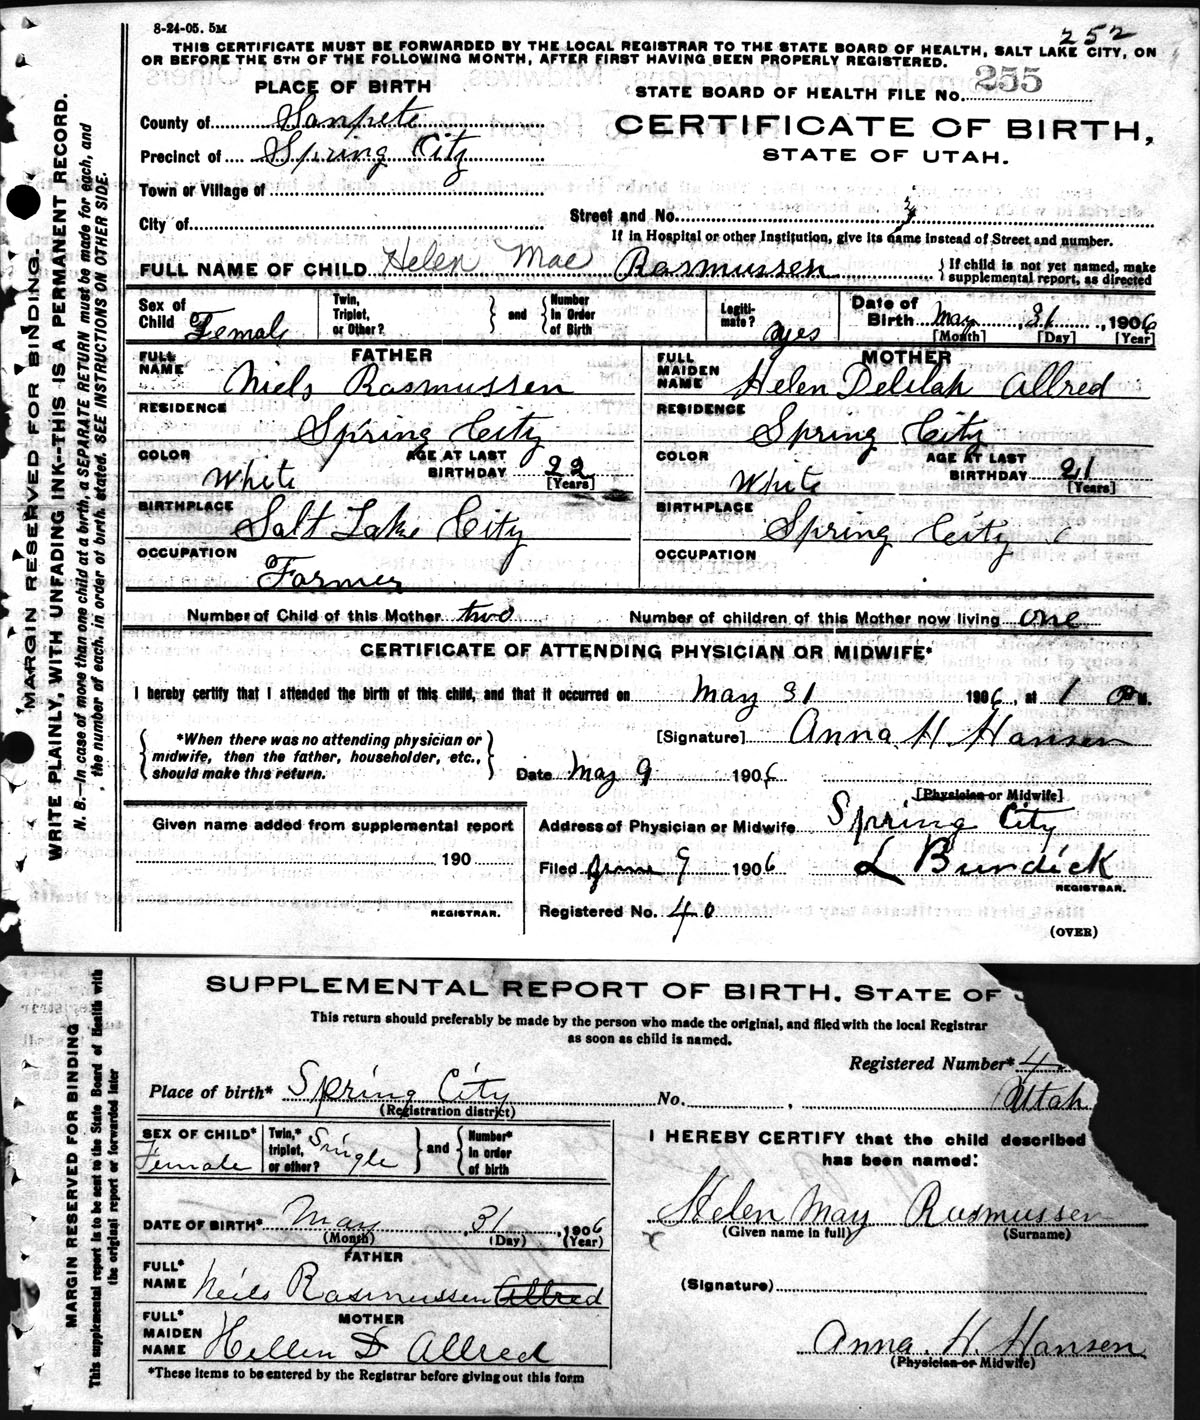 8-24-05. 5M
252
THIS CERTIFICATE MUST BE FORWARDED BY THE LOCAL REGISTRAR TO THE STATE BOARD OF HEALTH, SALT LAKE CITY, ON
OR BEFORE THE 5TH OF THE FOLLOWING MONTH, AFTER FIRST HAVING BEEN PROPERLY REGISTERED.
PLACE OF BIRTH
STATE BOARD OF HEALTH FILE No. 255
County of Sanpete
CERTIFICATE OF BIRTH,
Precinct of Spring City
STATE OF UTAH.
Town or Village of
City of
Street and No.
If in Hospital or other Institution, give its name instead of Street and number.
FULL NAME OF CHILD Helen Mae Rasmussen { If child is not yet named, make
supplemental report, as directed
Sex of Child Female
Twin, Triplet, or Other? } and { Number In Order of Birth
Legiti-mate? yes
Date of Birth May 31, 1906
[Month] [Day] [Year]
FATHER
FULL NAME Niels Rasmussen
RESIDENCE Spring City
COLOR White AGE AT LAST BIRTHDAY 22 [Years]
BIRTHPLACE Salt Lake City
OCCUPATION Farmer
MOTHER
FULL MAIDEN NAME Helen Delilah Allred
RESIDENCE Spring City
COLOR White AGE AT LAST BIRTHDAY 21 [Years]
BIRTHPLACE Spring City
OCCUPATION
Number of Child of this Mother two Number of children of this Mother now living one
CERTIFICATE OF ATTENDING PHYSICIAN OR MIDWIFE*
I hereby certify that I attended the birth of this child, and that it occurred on May 31 1906, at 1 P M.
{ *When there was no attending physician or
midwife, then the father, householder, etc.,
should make this return. }
[Signature] Anna H. Hansen
Date May 9 1906
[Physician or Midwife]
Given name added from supplemental report
190
REGISTRAR.
Address of Physician or Midwife Spring City
Filed June 9 1906 L Burdick
REGISTRAR.
Registered No. 40
(OVER)
MARGIN RESERVED FOR BINDING.
WRITE PLAINLY, WITH UNFADING INK--THIS IS A PERMANENT RECORD.
N. B.—In case of more than one child at a birth, a SEPARATE RETURN must be made for each, and
the number of each, in order of birth, stated. SEE INSTRUCTIONS ON OTHER SIDE.
SUPPLEMENTAL REPORT OF BIRTH, STATE OF
This return should preferably be made by the person who made the original, and filed with the local Registrar
as soon as child is named.
Registered Number* 4
Place of birth* Spring City No. Utah
(Registration district)
SEX OF CHILD* Female
Twin,* triplet, or other? Single } and { Number* In order of birth
DATE OF BIRTH* May 31, 1906
(Month) (Day) (Year)
FATHER
FULL* NAME Neils Rasmussen Allred
MOTHER
FULL* MAIDEN NAME Hellen D Allred
*These items to be entered by the Registrar before giving out this form
I HEREBY CERTIFY that the child described
has been named:
Helen May Rasmussen
(Given name in full) (Surname)
(Signature)
Anna. H. Hansen
(Physician or Midwife)
MARGIN RESERVED FOR BINDING
This supplemental report is to be sent to the State Board of Health with
the original report or forwarded later